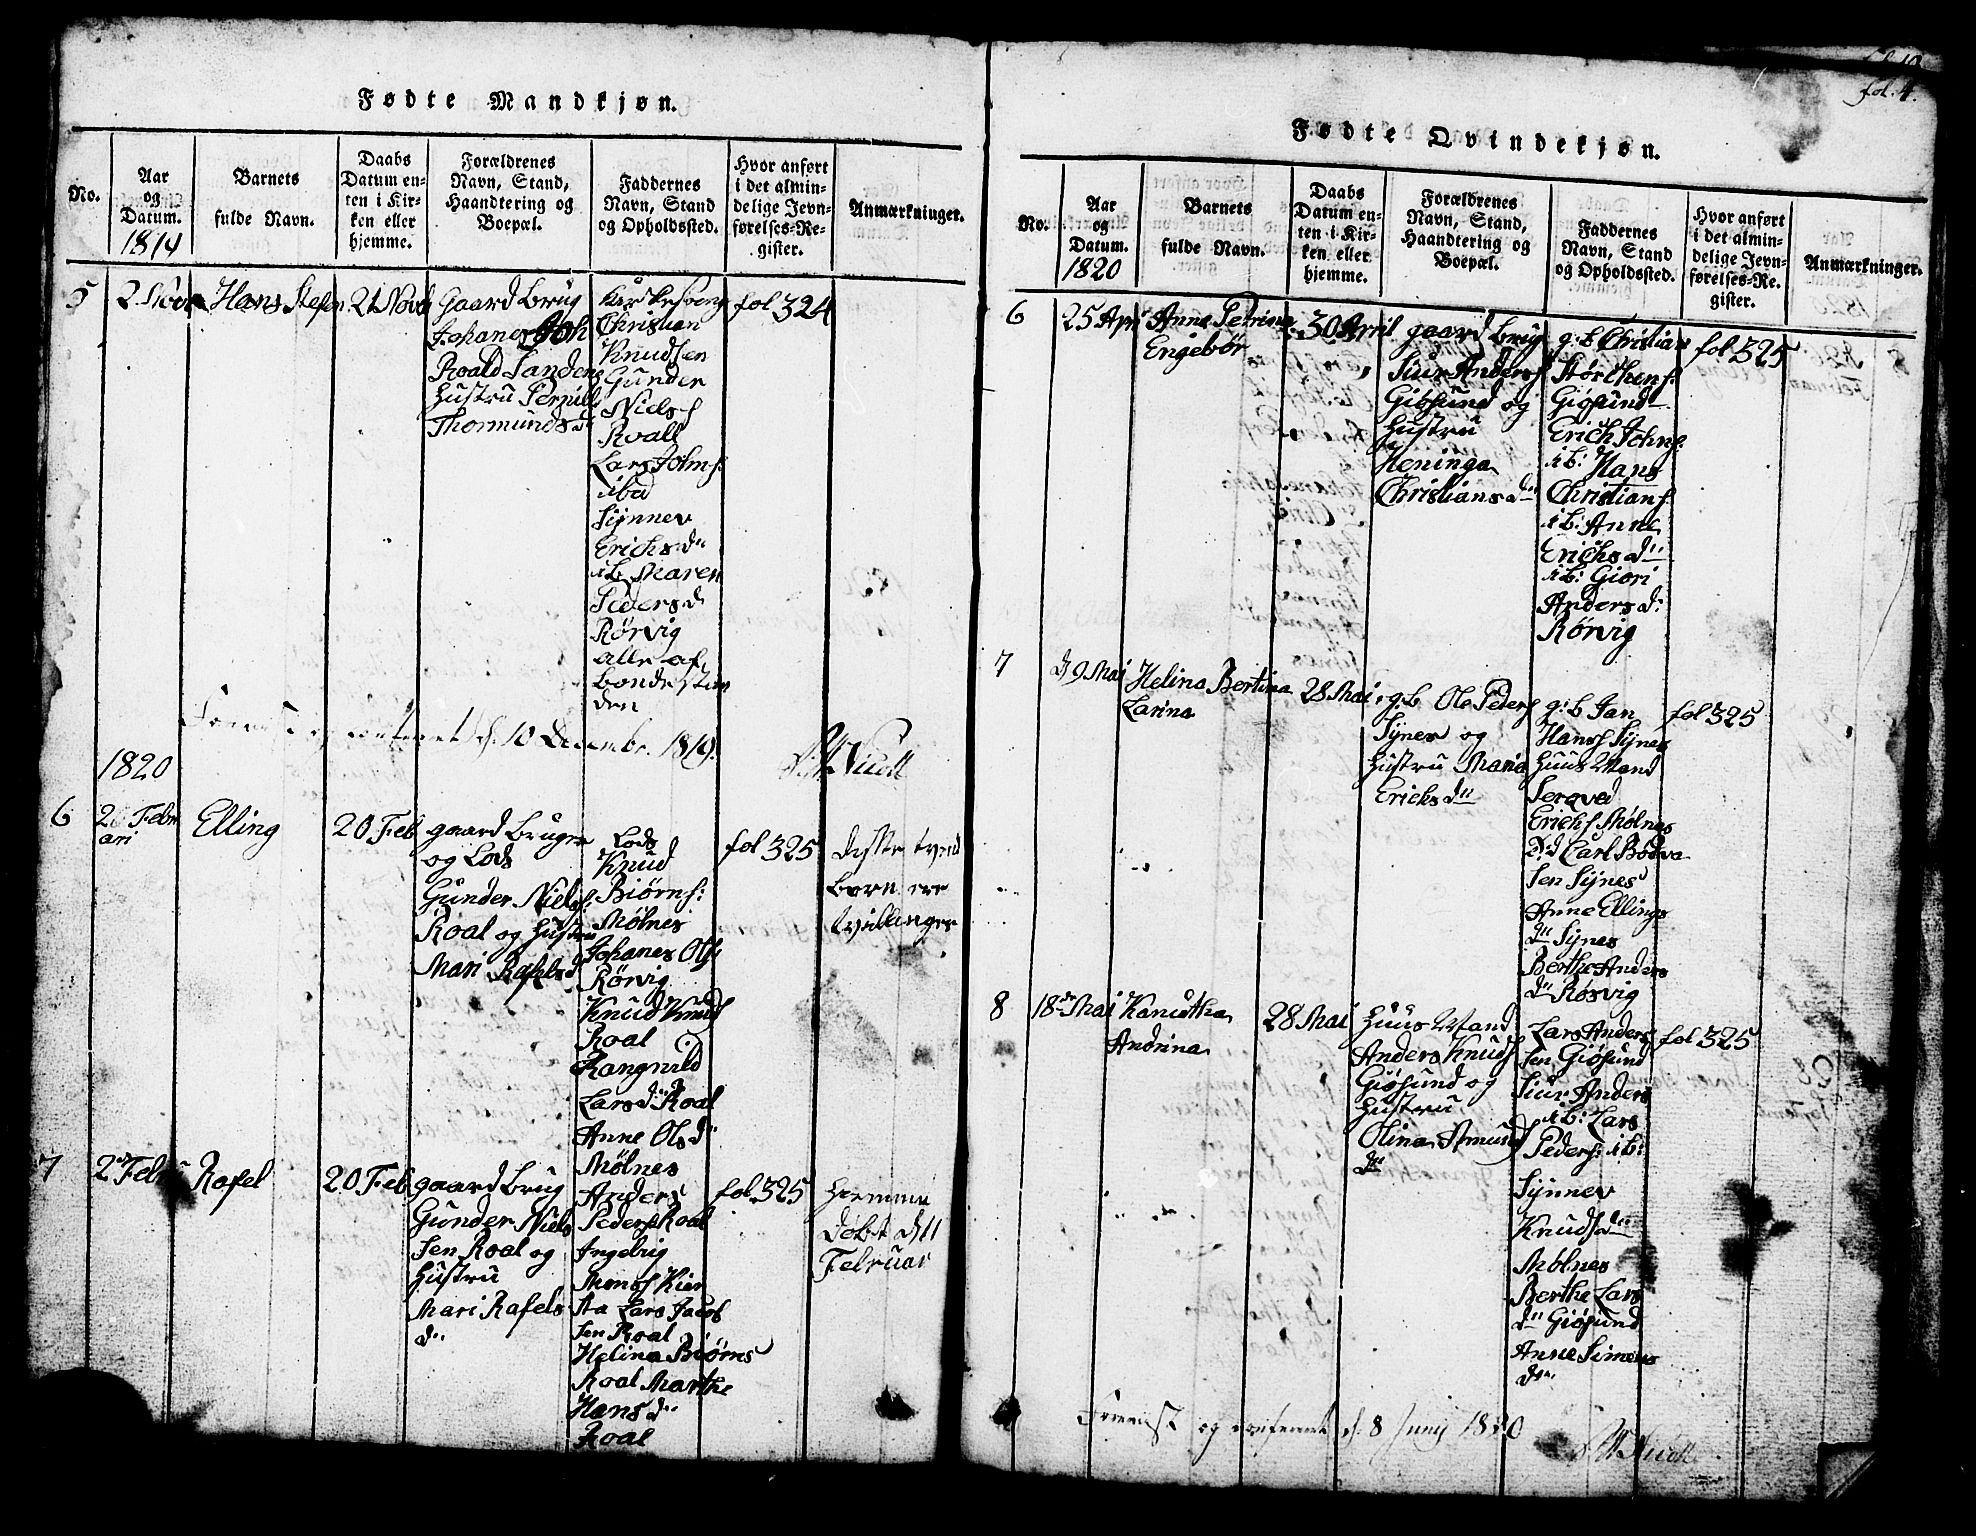 fol. 4.
Fødte Mandkjøn.
No.
Aar
og
Datum.
1819
Barnets
fulde Navn.
Daabs
Datum en-
ten i Kir-
ken eller
hjemme.
Forældrenes
Navn, Stand,
Haandtering og
Boepæl.
Faddernes
Navn, Stand
og Opholdssted.
Hvor anført
i det almin-
delige Jevn-
førelses-Re-
gister.
Anmærkninger.
5
2 Nov
Hans Stefen
21 Novb
Gaard brug
Johanes Joh
Roald Sanden
Hustru Pernill
Thormunds d
Christian
Knudsen
Gunder
Niels f
Roall
Lars Johns:
ibd
Synnev
Erichs d
i b Maren
Peders d
Rørvig
alle af
bondestan
den
fol 324
og confereret d. 10 Decembr. 1819.
1820
6
2 Febru
ari
Elling
20 Feb
gaard bruger
og Lods
Gunder Niels:
Roal og Hustru
Mari Rafels d
Lods
Knud
Biørns:
Mølnes
Johanes Ols:
Rørvig
Knud Knud
Roal
Rangnild
Lars d Roal
Anne Ols d
Mølnes
fol 325
disse tvend
børn ere
tvillinger
7
2 Feb
Rafel
20 Feb
gaard brug
Gunder Niels
sen Roal og
Hustru
Mari Rafels
d
Anders
Peders Roal
Ingebrig
Mons f Kier
sta Lars Jacob
sen Roal
Helina Biørns
Roal Marthe
Hans d
Roal
fol. 325
hiemme
døbt d 11
Februar
Fødte Qvindekjøn.
No.
Aar
og
Datum.
1820
Barnets
fulde Navn.
Daabs
Datum en-
ten i Kir-
ken eller
hjemme.
Forældrenes
Navn, Stand,
Haandtering og
Boepæl.
Faddernes
Navn, Stand
og Opholdssted.
Hvor anført
i det almin-
delige Jevn-
førelses-Re-
gister.
Anmærkninger.
6
25 Apri
Anne Petrina
Engebør
30 Avril
gaard brug
Siur Anders f
Giøsund og
Hustru
Heninga
Christians d
g: b Christian
Størchens:
Giøsund
Erich Johns:
i b: Hans
Christians:
i b: Anne
Erichs d
i b: Giori
Anders d:
Rørvig
fol 325
7
d 9 Mai
Helina Bertina
Larina
28 Mai
g: b Ole Peders
Synes og
Hustru Maria
Erichs d
g: b Jan
Hans f Synes
Huus Mand
Serqved
Erichs Mølnes
D: d Carl Bodva
sen Synes
Anne Ellings
d Synes
Berthe Anders
d Røsvig
fol 325
8
18 d Mai
Kanutha
Andrina
28 Mai
Huus Mand
Anders Knuds
Giøsund og
Hustru
Olina Amund
d
Lars Anders
sen Giøsund
Siur Anders
i b: Lars
Peders: i b:
Synnev
Knuds d
Mølnes
Berthe Lars
d Giøsund
Anne Simens
d
fol 325
og confereret d. 8 Junij 1820